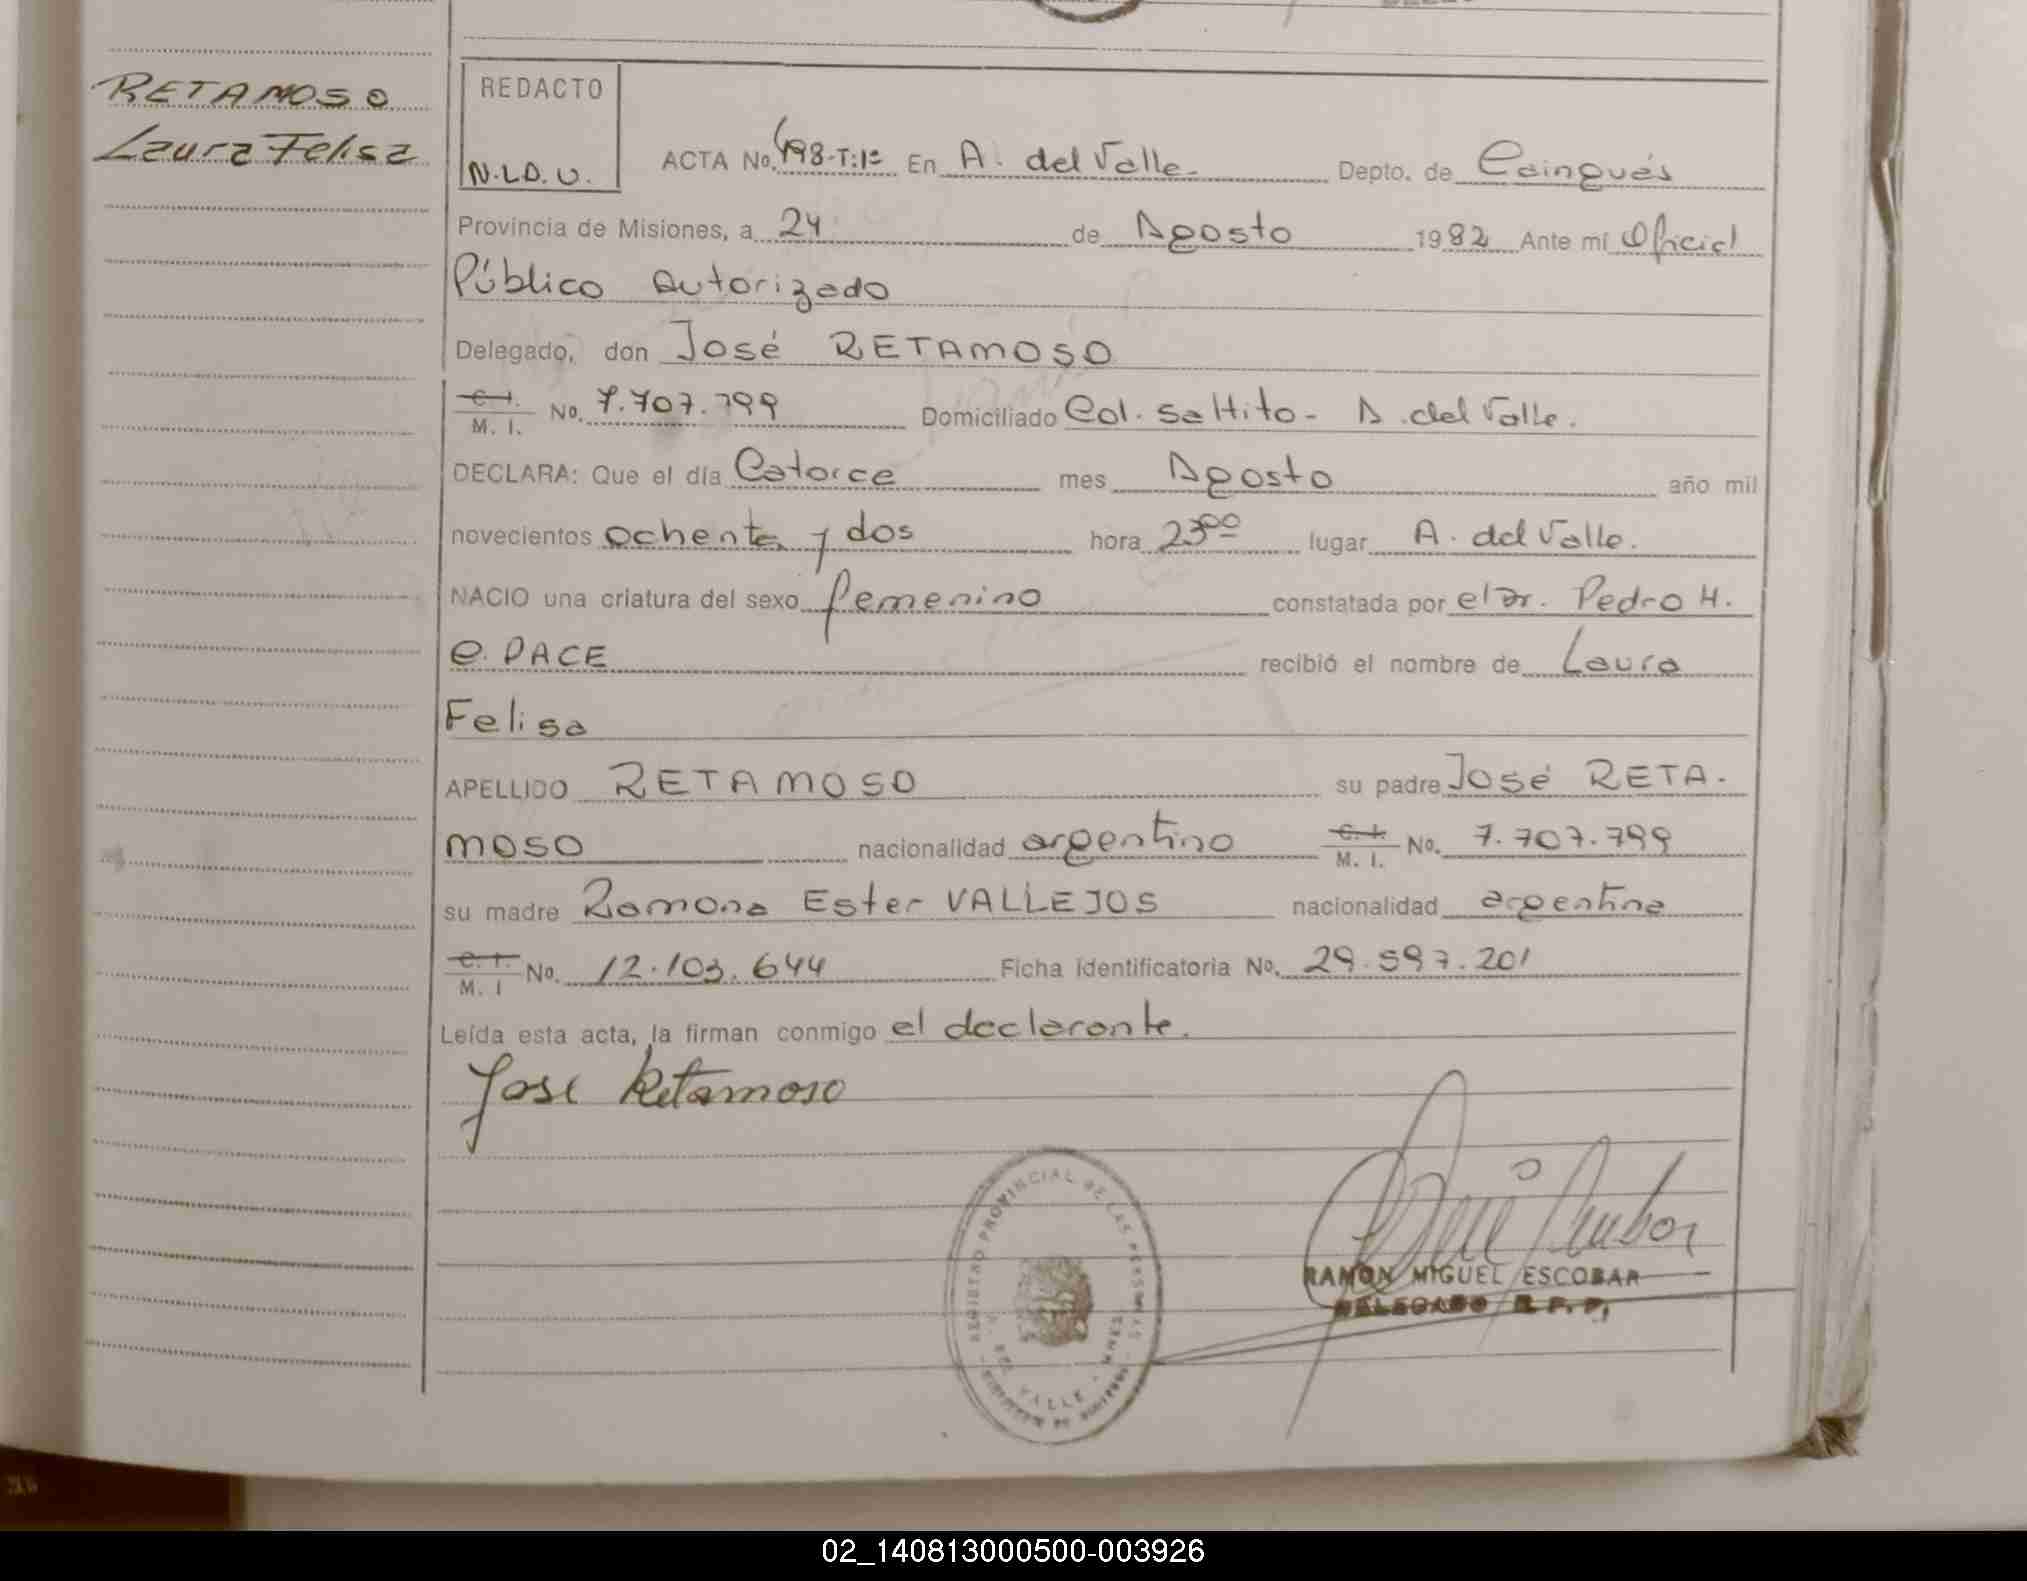 RETAMOSO
Laura Felisa
REDACTO
N.L.D.U.
ACTA No. 498-T:1º En A. del Valle Depto. de Cainguás
Provincia de Misiones, a 24 de Agosto 1982 Ante mí Oficial
Público Autorizado
Delegado, don José RETAMOSO
C.I. M.I. No. 7.707.799 Domiciliado Col. Saltito - A. del Valle.
DECLARA: Que el día Catorce mes Agosto año mil
novecientos ochenta y dos hora 23:00 lugar A. del Valle.
NACIO una criatura del sexo femenino constatada por el Dr. Pedro H.
e. PACE recibió el nombre de Laura
Felisa
APELLIDO RETAMOSO su padre José RETA.
MOSO nacionalidad argentino C.I. M.I. No. 7.707.799
su madre Ramona Ester VALLEJOS nacionalidad argentina
C.I. M.I No. 12.103.644 Ficha identificatoria No. 29.597.201
Leída esta acta, la firman conmigo el declarante.
Jose Retamoso
REGISTRO PROVINCIAL DE LAS PERSONAS
DEL VALLE - MNES
RAMON MIGUEL ESCOBAR
DELEGADO R.P.P.
02_140813000500-003926